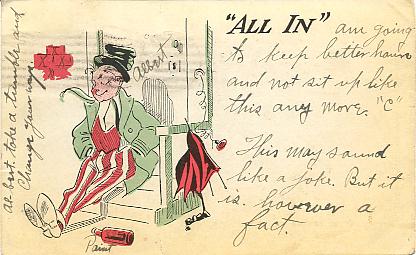 "ALL IN"
am going
to keep better hours
and not sit up like
this any more. "C"
This may sound
like a joke. But it
is however a
fact.
Albert
Al-bert. take a tumble and
Change your ways
XXX
Paint